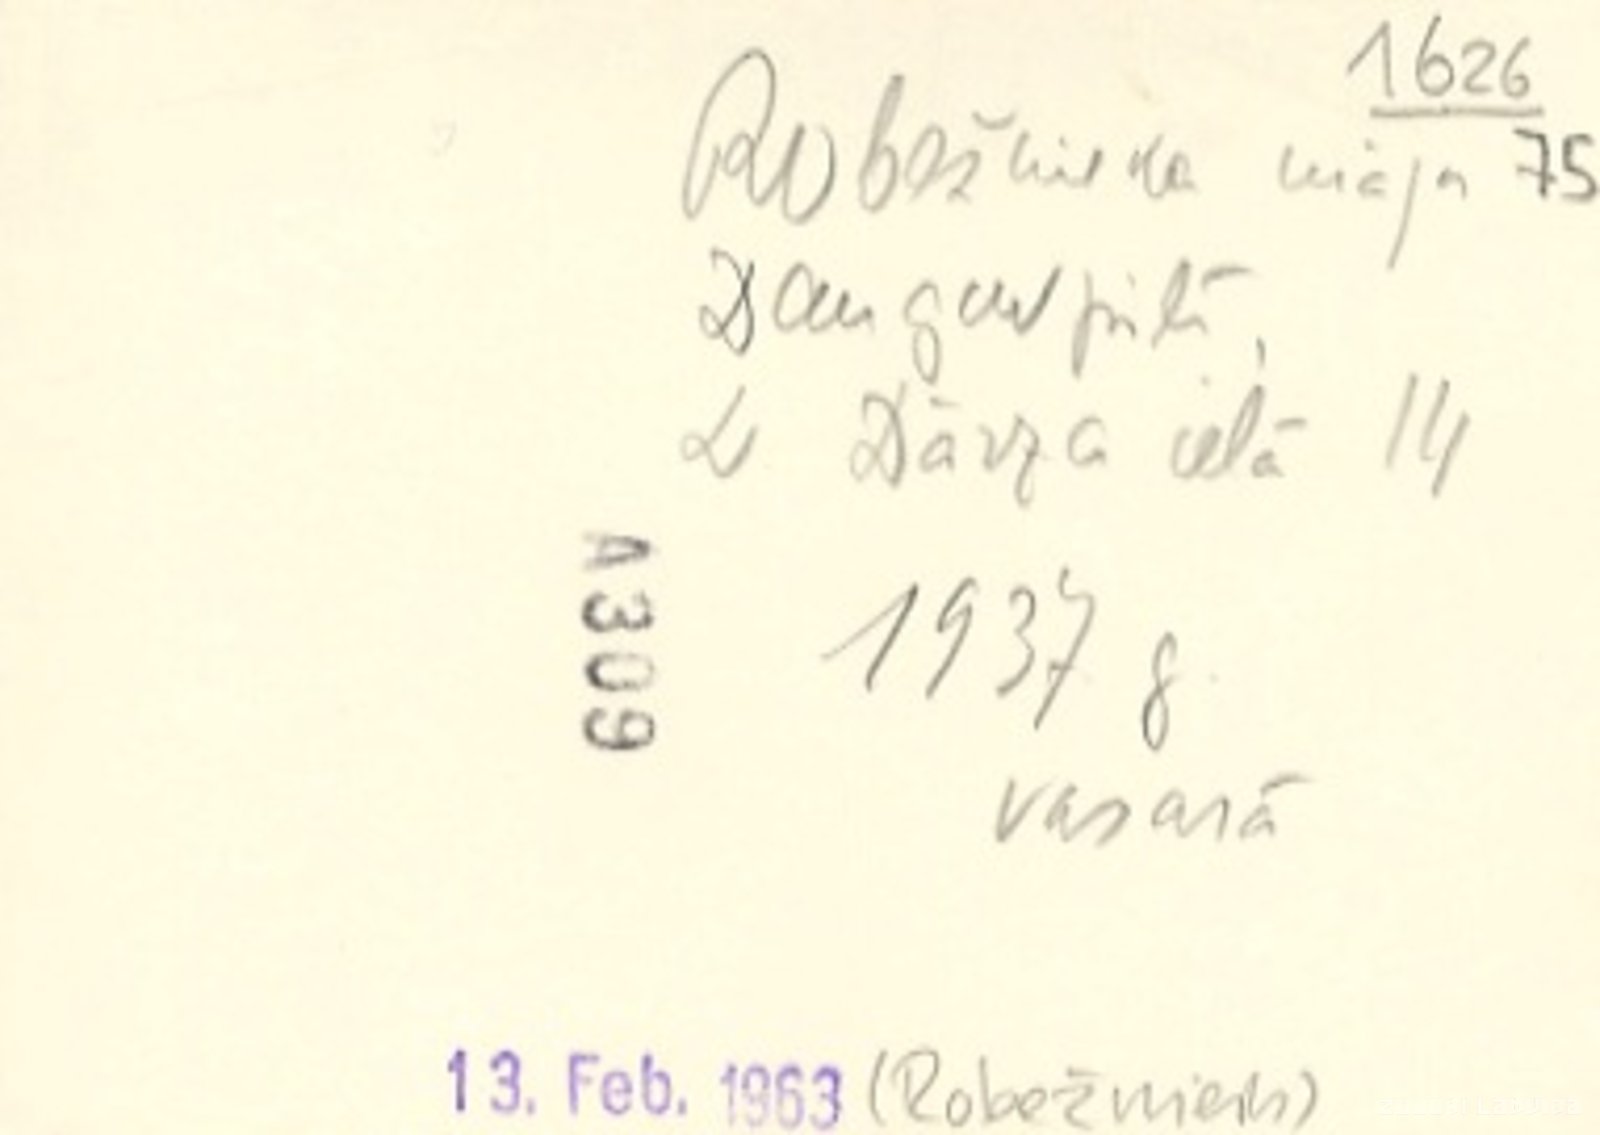 1626
75
Robežnieka māja
Daugavpilī,
L Dārza ielā 14
A309
1937 g.
vasarā
13. Feb. 1963 (Robežnieks)